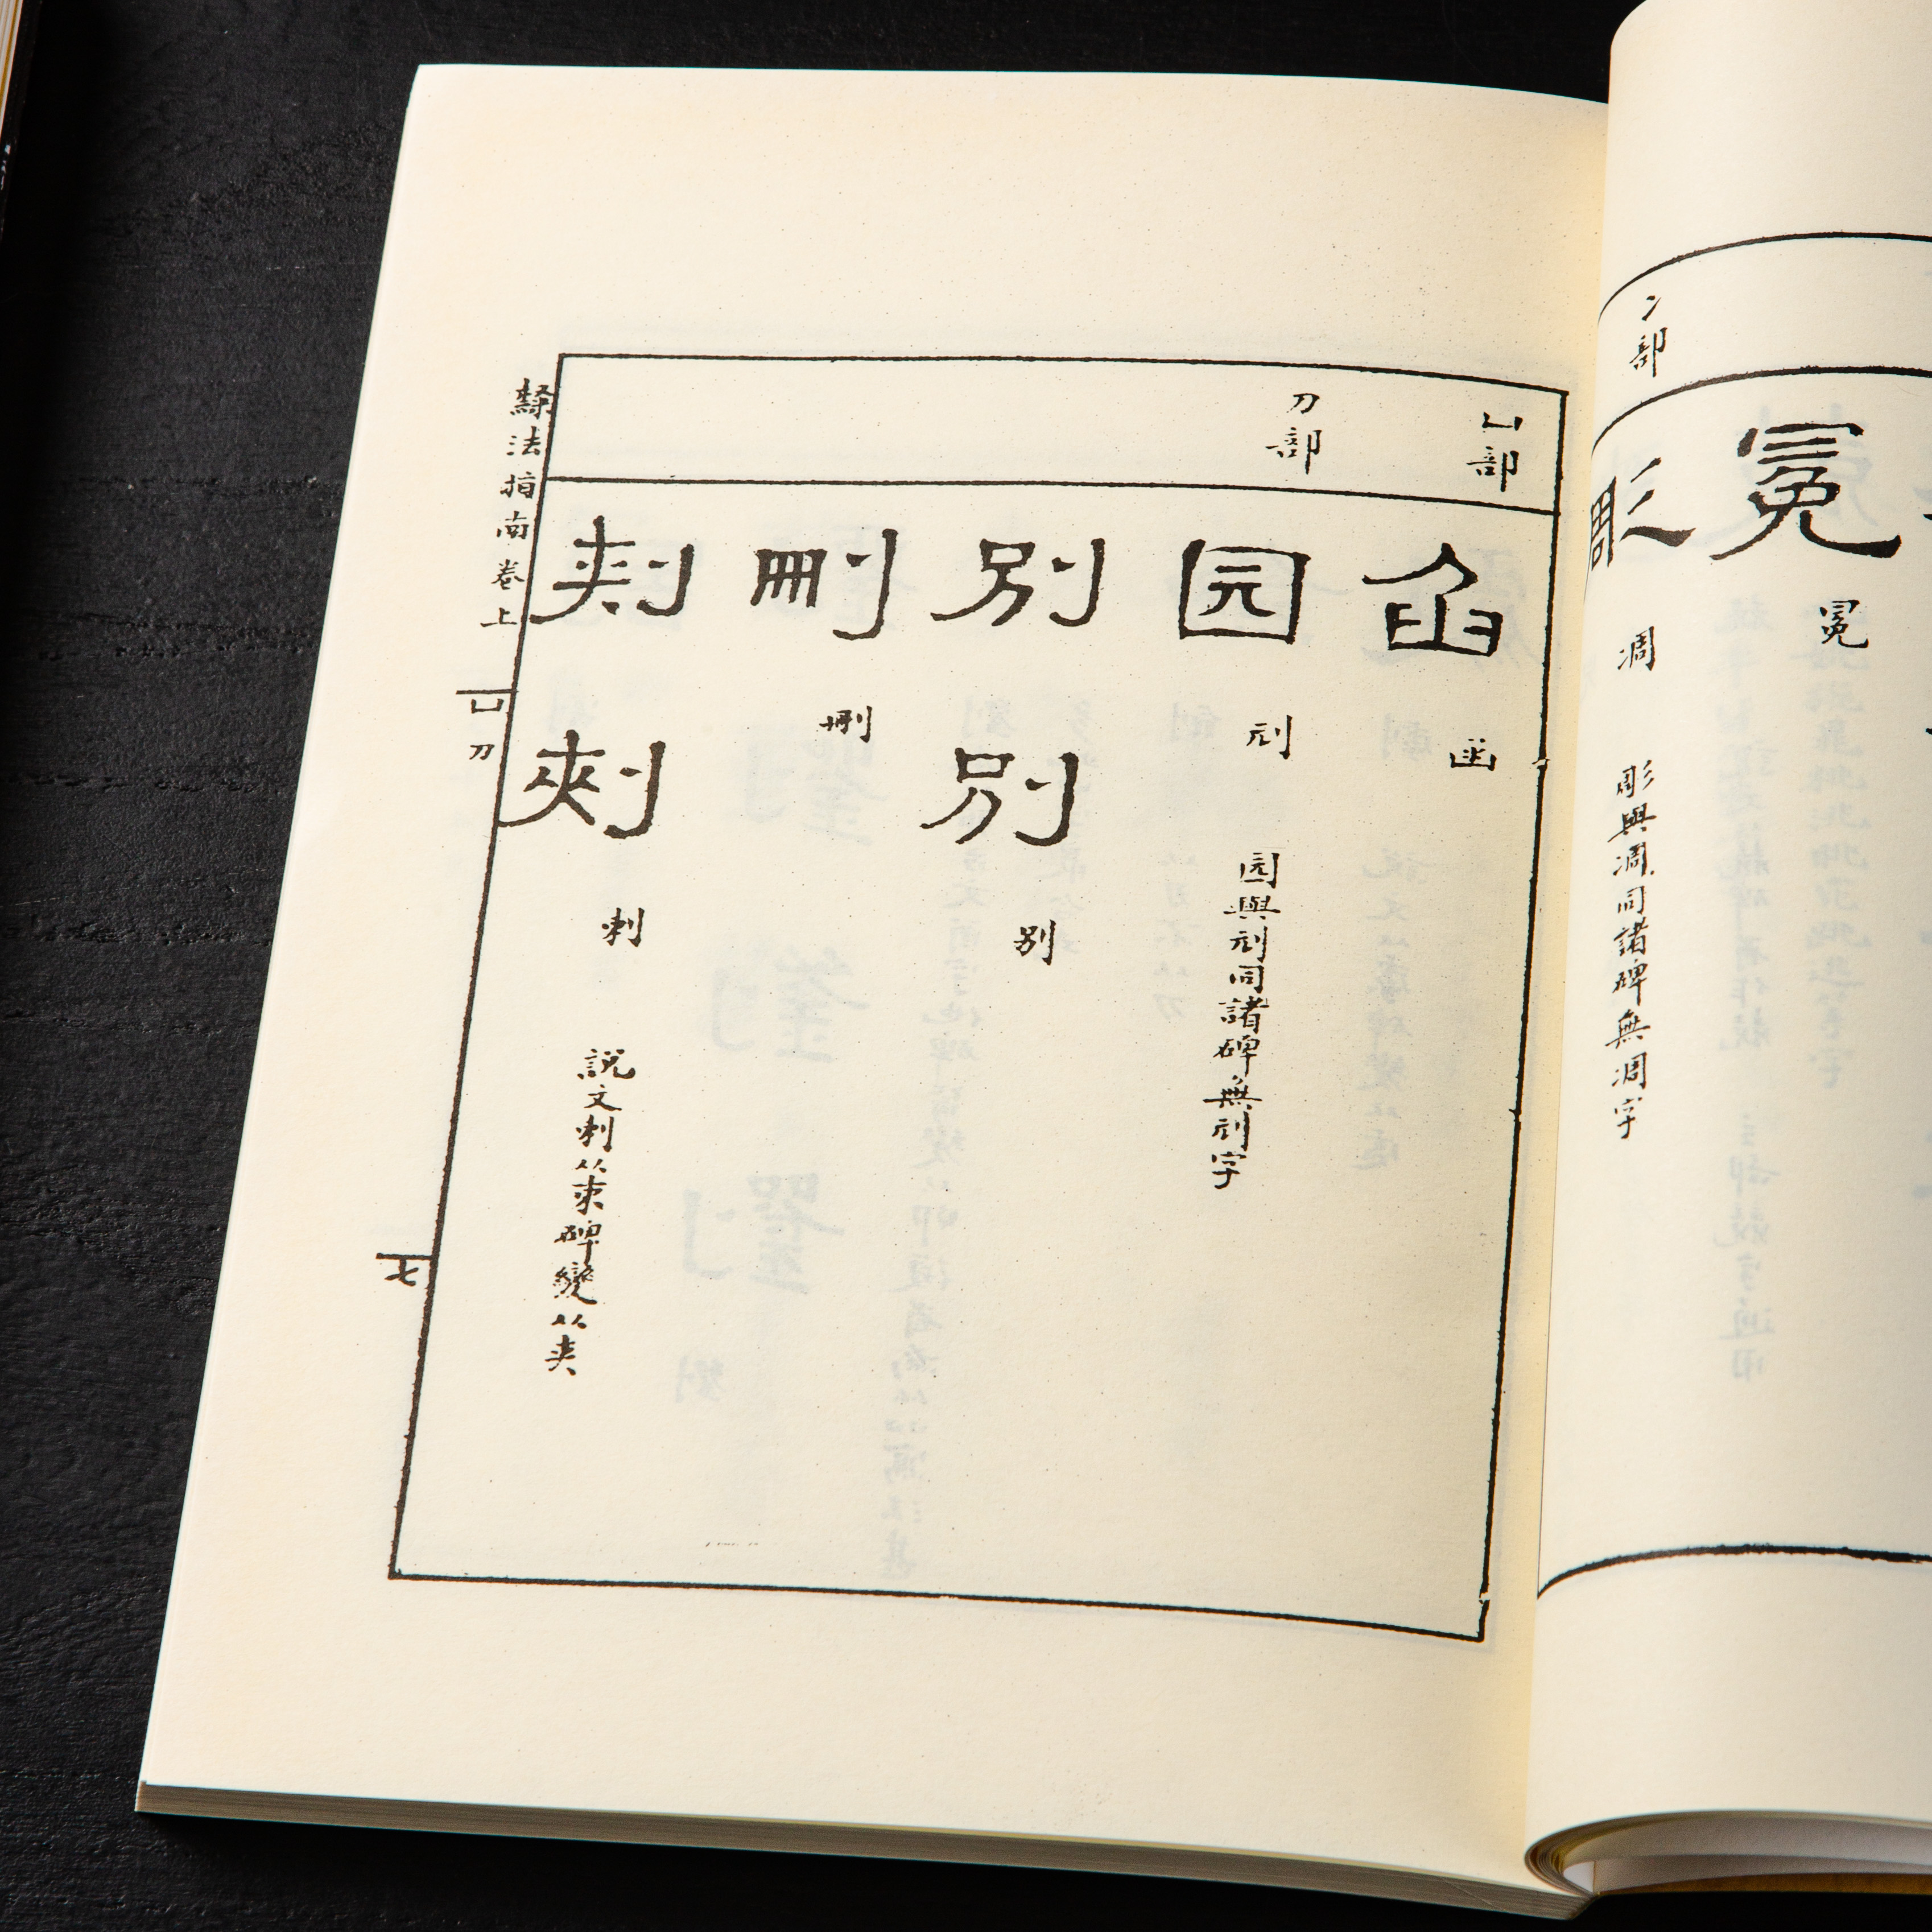 冫部
冕
冕
彫
凋
彫與凋同諸碑無凋字
凵部
刀部
函
函
园
刓
园與刓同諸碑無刓字
別
別
別
刪
刪
刾
刾
刺
說文刺从朿碑變从夹
隸法指南卷上
凵刀
七